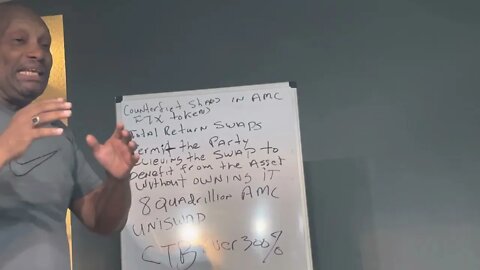 Counterfiet Shares IN AMC
FTX tokens
Total Return SWAPS
Permit the Party
Recieving the SWAP to
benefit from the Asset
Without OWNING IT
8 Quadrillion AMC
UNISWAP
CTB over 300%